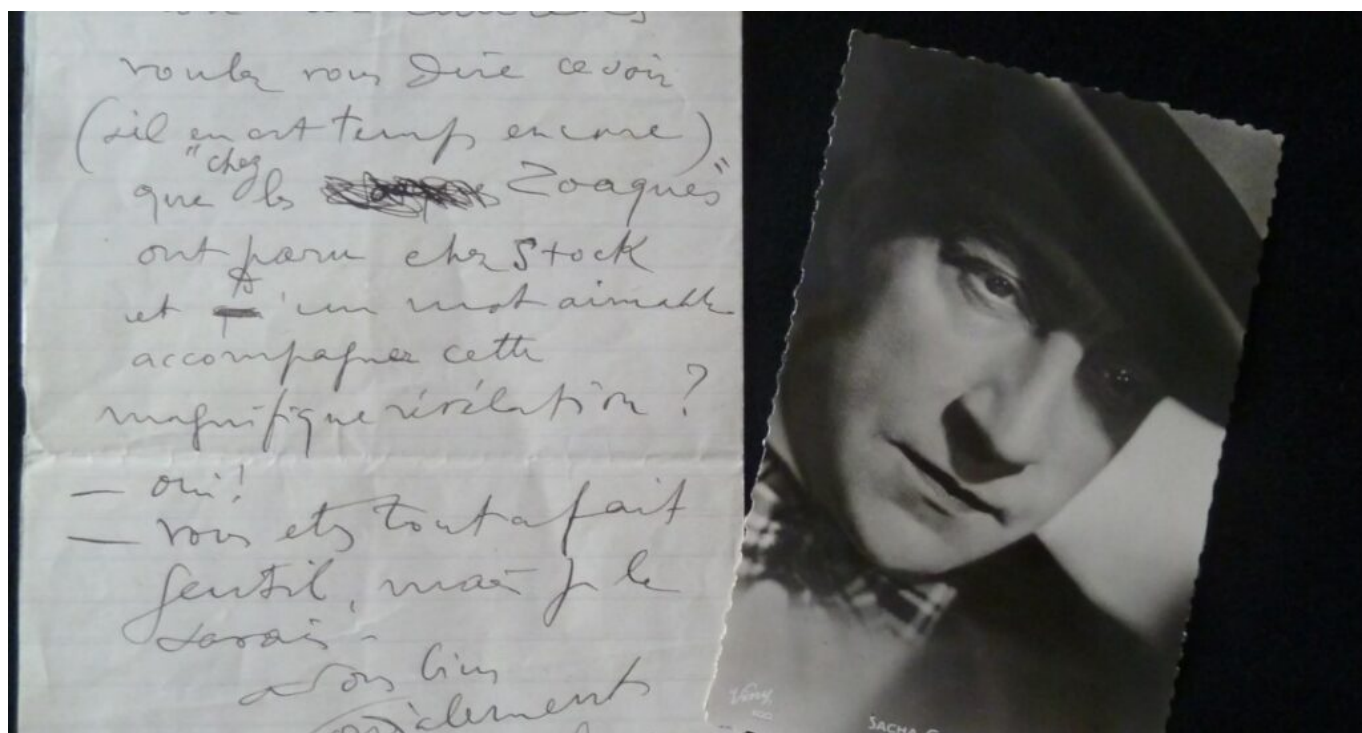 voulez vous dire ce soir
(s'il en est temps encore)
que "chez les Zoaques"
ont paru chez Stock
et qu'un mot aimable
accompagner cette
magnifique révélation ?
— oui !
— vous etes tout a fait
gentil, mais je le
savais -
Vous bien
cordialement
Viny
SACHA G